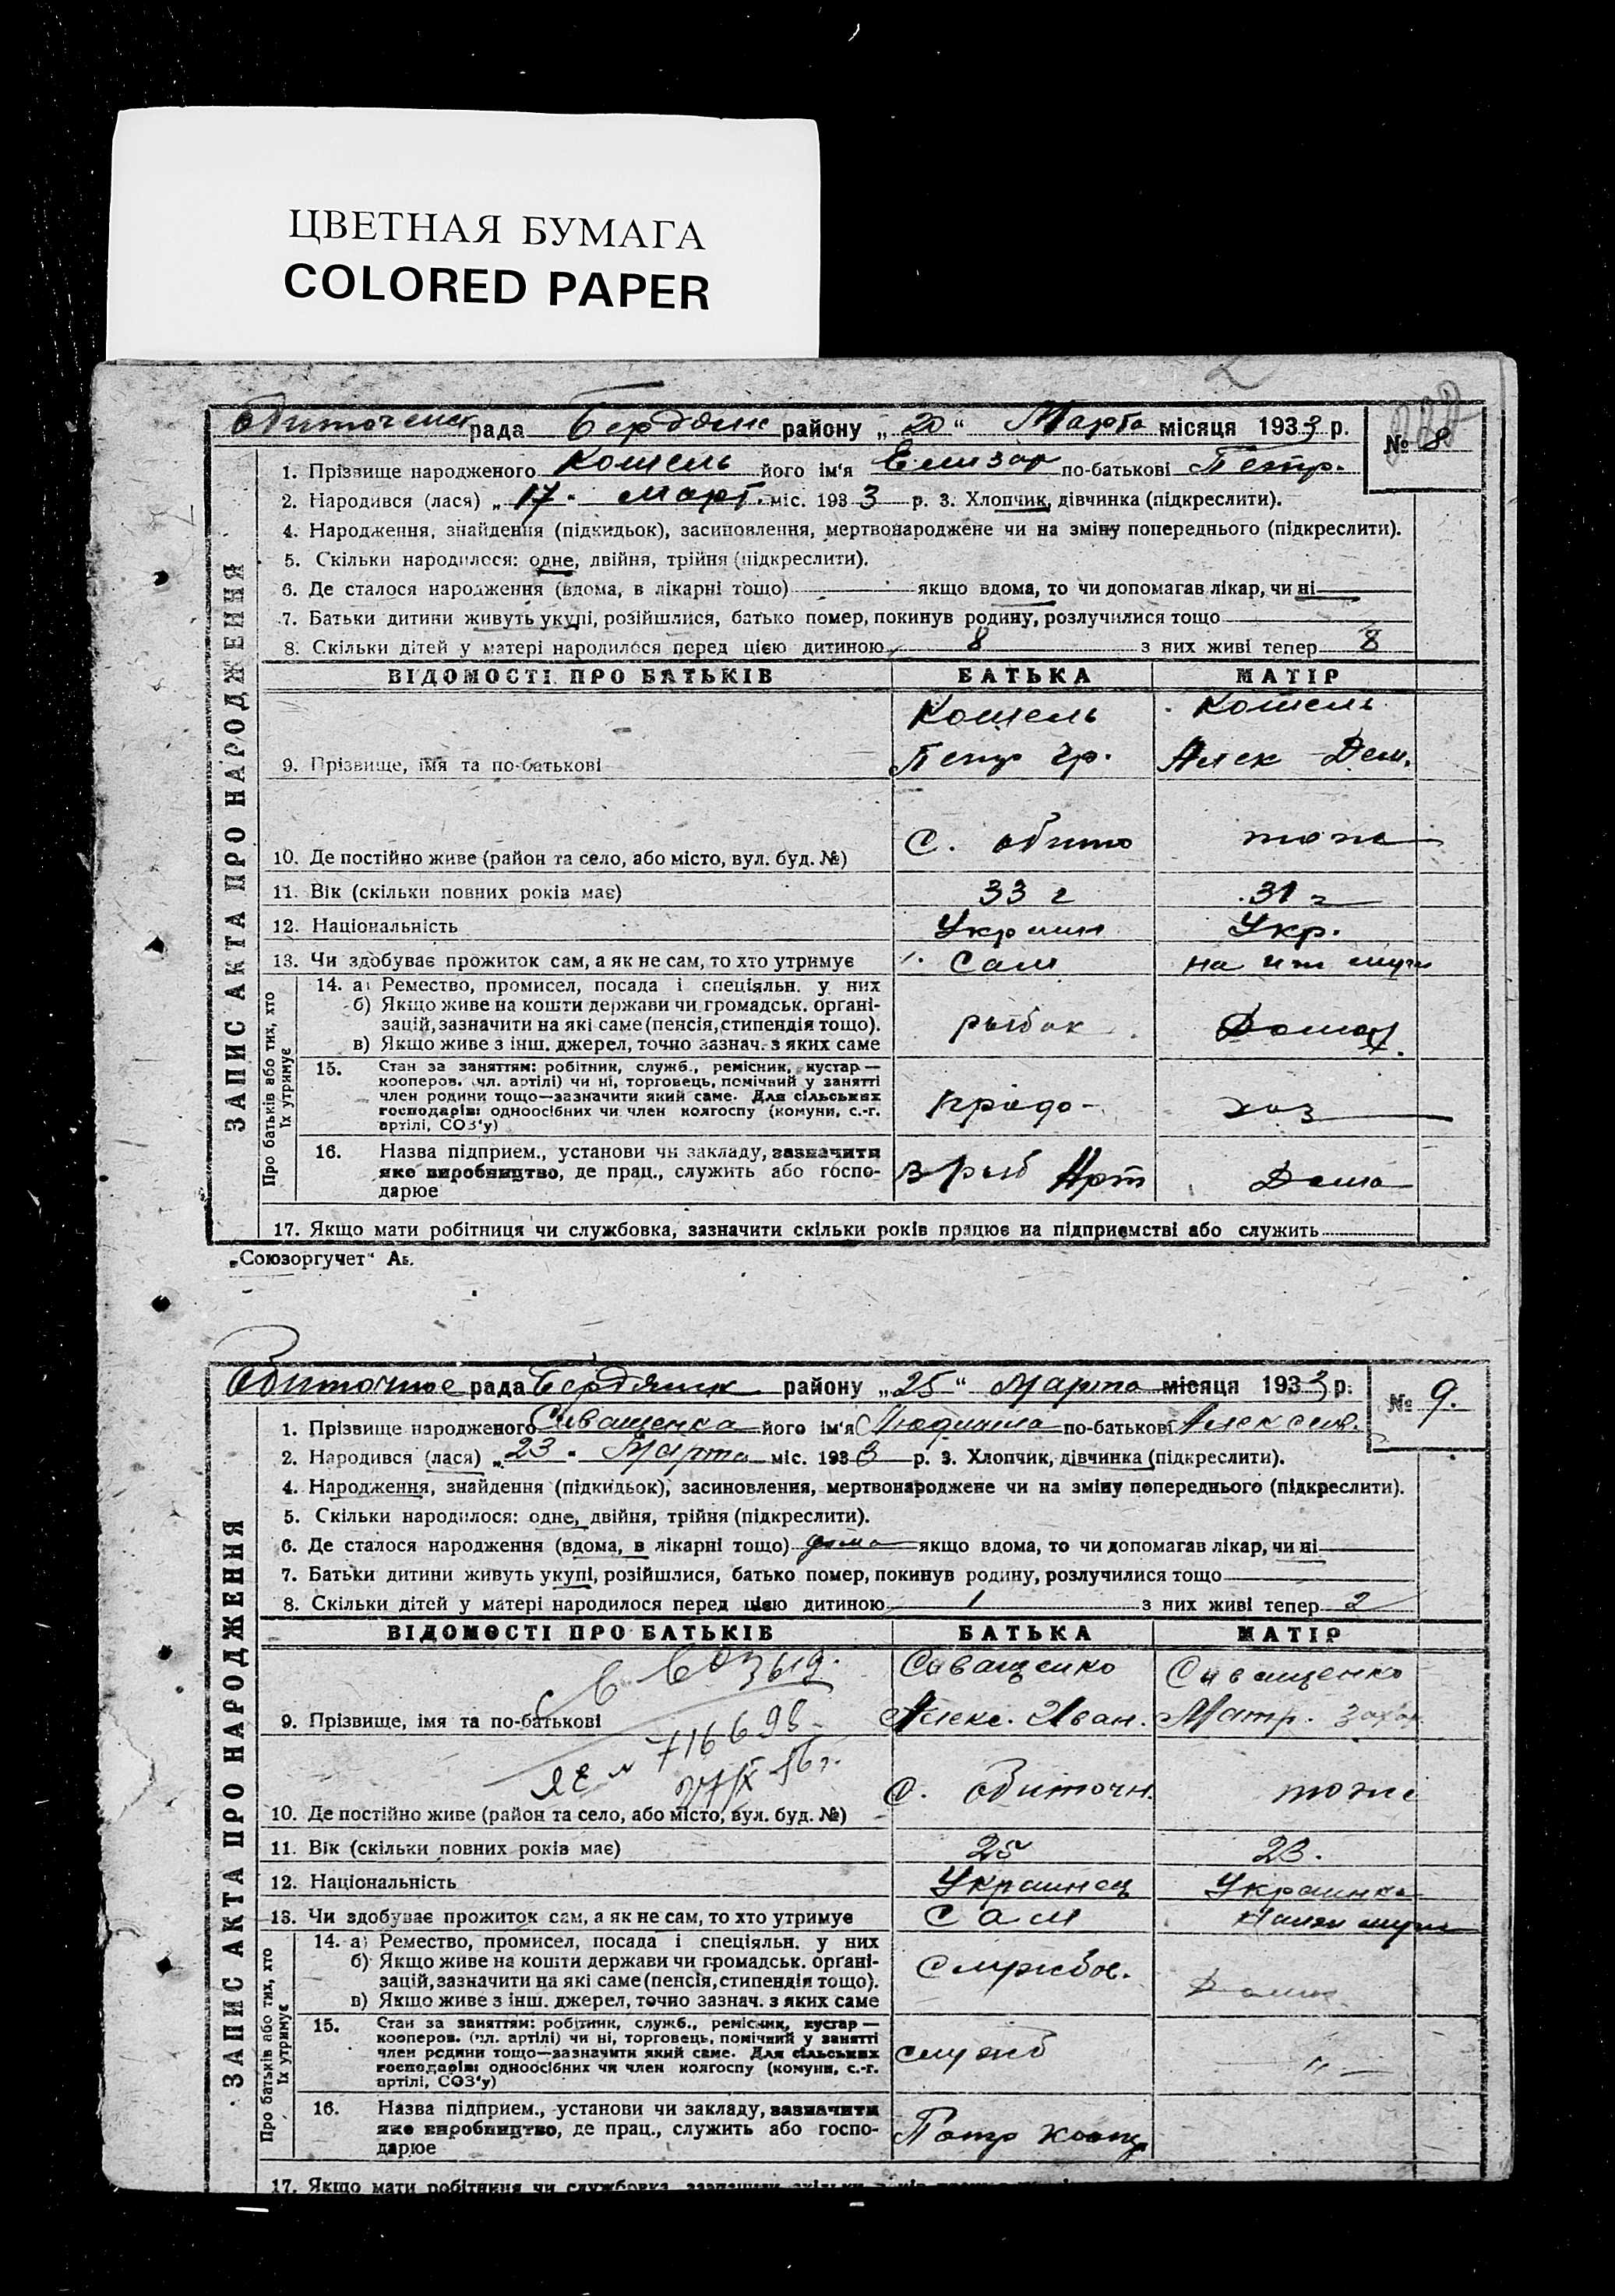 ЦВЕТНАЯ БУМАГА
COLORED PAPER
рада Бердянск району „ 20 “ Марта місяця 1933 р.
№ 8
1. Прізвище народженого Кошель його ім'я Елизар по-батькові Петр.
2. Народився (лася) „ 17 " март. міс. 1933 р. 3. Хлопчик, дівчинка (підкреслити).
4. Народження, знайдення (підкидьок), засиновлення, мертвонароджене чи на зміну попереднього (підкреслити).
5. Скільки народилося: одне, двійня, трійня (підкреслити).
6. Де сталося народження (вдома, в лікарні тощо) якщо вдома, то чи допомагав лікар, чи ні
7. Батьки дитини живуть укупі, розійшлися, батько помер, покинув родину, розлучилися тощо
8. Скільки дітей у матері народилося перед цією дитиною 8 з них живі тепер 8
ВІДОМОСТІ ПРО БАТЬКІВ БАТЬКА МАТІР
Кошель Кошель
9. Прізвище, імя та по-батькові Петр Гр. Алек Дем.
10. Де постійно живе (район та село, або місто, вул. буд. №) С. обито тоже
11. Вік (скільки повних років має) 33 г 31 г
12. Національність Украин Укр.
13. Чи здобуває прожиток сам, а як не сам, то хто утримує Сам на иж мужа
14. а) Ремество, промисел, посада і спеціяльн. у них
б) Якщо живе на кошти держави чи громадськ. органі-
зацій, зазначити на які саме (пенсія, стипендія тощо). рыбак
в) Якщо живе з інш. джерел, точно зазнач. з яких саме
15. Стан за заняттям: робітник, служб., ремісник, кустар —
кооперов. (чл. артілі) чи ні, торговець, помічний у занятті
член родини тощо—зазначити який саме. Для сільських
господарів: одноосібних чи член колгоспу (комуни, с.-г. хоз
артілі, СОЗ'у)
16. Назва підприєм., установи чи закладу, зазначити
яке виробництво, де прац., служить або госпо- В рыб Арт Дома
дарює
17. Якщо мати робітниця чи службовка, зазначити скільки років працює на підприємстві або служить
ЗАПИС АКТА ПРО НАРОДЖЕННЯ
Про батьків або тих, хто
їх утримує
„Союзоргучет“ Аб.
Обиточное рада Бердянск району „ 25 “ Марта місяця 1933 р.
№ 9.
1. Прізвище народженого Сиващенка його ім'я Людмила по-батькові Алексеев.
2. Народився (лася) „ 23 " Марта міс. 1933 р. 3. Хлопчик, дівчинка (підкреслити).
4. Народження, знайдення (підкидьок), засиновлення, мертвонароджене чи на зміну попереднього (підкреслити).
5. Скільки народилося: одне, двійня, трійня (підкреслити).
6. Де сталося народження (вдома, в лікарні тощо) дома якщо вдома, то чи допомагав лікар, чи ні
7. Батьки дитини живуть укупі, розійшлися, батько помер, покинув родину, розлучилися тощо
8. Скільки дітей у матері народилося перед цією дитиною 1 з них живі тепер 2
ВІДОМОСТІ ПРО БАТЬКІВ БАТЬКА МАТІР
Сиващенко Сиващенко
9. Прізвище, імя та по-батькові Алекс. Иван. Матр. Захар
716698
10. Де постійно живе (район та село, або місто, вул. буд. №) С. Обиточн. тоже
11. Вік (скільки повних років має) 25 23.
12. Національність Украинец Украинка
13. Чи здобуває прожиток сам, а як не сам, то хто утримує Сам
14. а) Ремество, промисел, посада і спеціяльн. у них
б) Якщо живе на кошти держави чи громадськ. органі- Службов.
зацій, зазначити на які саме (пенсія, стипендія тощо).
в) Якщо живе з інш. джерел, точно зазнач. з яких саме
15. Стан за заняттям: робітник, служб., ремісник, кустар —
кооперов. (чл. артілі) чи ні, торговець, помічний у занятті
член родини тощо—зазначити який саме. Для сільських служб
господарів: одноосібних чи член колгоспу (комуни, с.-г. „ —
артілі, СОЗ'у)
16. Назва підприєм., установи чи закладу, зазначити
яке виробництво, де прац., служить або госпо-
дарює
17. Якщо мати робітниця чи службовка, зазначити скільки років
ЗАПИС АКТА ПРО НАРОДЖЕННЯ
Про батьків або тих, хто
їх утримує